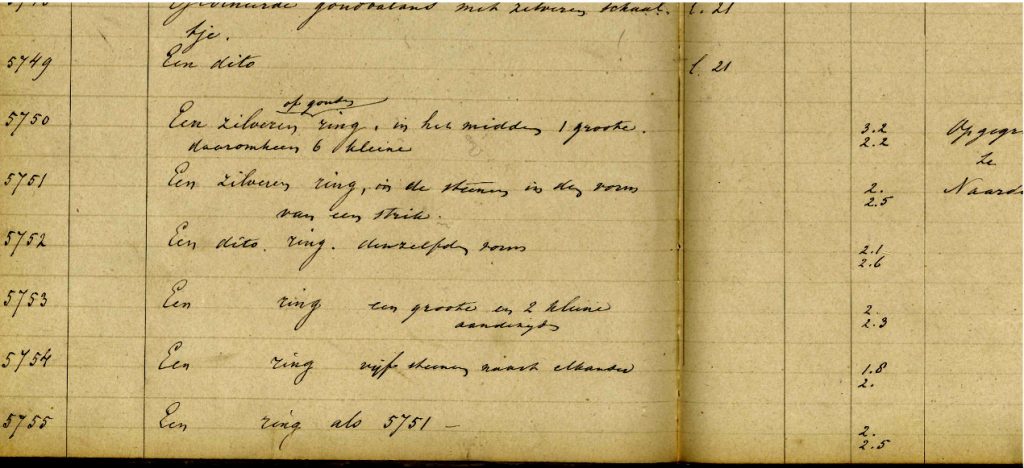 goudbalans met zilveren schaal- l. 21
tje.
5749 Een dito l. 21
op gouden
5750 Een zilveren ring, in het midden 1 groote. 3.2 Opgegr
daaromheen 6 kleine 2.2 te
5751 Een zilveren ring, in de steenen in den vorm 2. Naard
van een strik. 2.5
5752 Een dito ring. denzelfden vorm 2.1
2.6
5753 Een ring een groote en 2 kleine 2.
2.3
5754 Een ring vijf steenen naast elkander 1.8
2.
5755 Een ring als 5751 — 2.
2.5